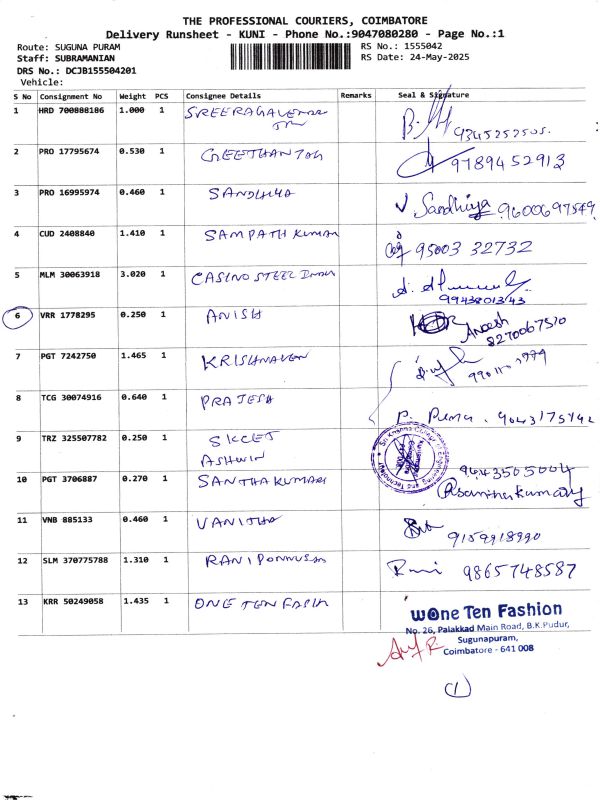 THE PROFESSIONAL COURIERS, COIMBATORE
Delivery Runsheet - KUNI - Phone No.:9047080280 - Page No.:1
Route: SUGUNA PURAM
RS No.: 1555042
Staff: SUBRAMANIAN
RS Date: 24-May-2025
DRS No.: DCJB155504201
Vehicle:
S No Consignment No Weight PCS Consignee Details Remarks Seal & Signature
1 HRD 700888186 1.000 1
2 PRO 17795674 0.530 1 9789452913
3 PRO 16995974 0.460 1 SANDHIYA Sandhiya 9600697549
4 CUD 2408840 1.410 1 SAMPATH KUMAR 95003 32732
5 MLM 30063918 3.020 1 CASINO STEEL INDIA
9943801343
6 VRR 1778295 0.250 1 ANISH
8270067510
7 PGT 7242750 1.465 1 KRISHNAVENI
8 TCG 30074916 0.640 1 PRAJESH
9 TRZ 325507782 0.250 1 SKCET
ASHWIN
Sri Krishna College of Engineering and Technology
10 PGT 3706887 0.270 1 SANTHAKUMARI
11 VNB 885133 0.460 1 VANITHA 9159918990
12 SLM 370775788 1.310 1 RANI PONNUSAM Rani 9865748587
13 KRR 50249058 1.435 1 ONE TEN FASH
wOne Ten Fashion
No. 26, Palakkad Main Road, B.K.Pudur,
Sugunapuram,
Coimbatore - 641 008
1